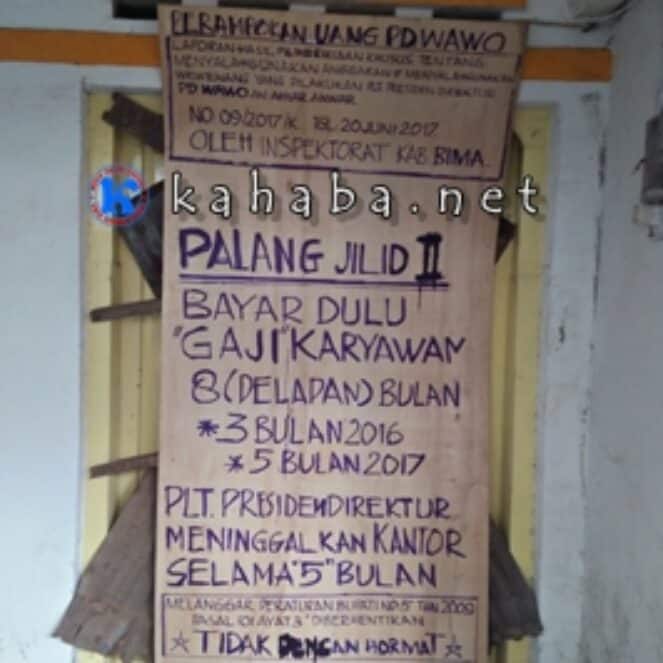 PERAMPOKAN UANG PD WAWO
LAPORAN HASIL PEMERIKSAAN KHUSUS TENTANG
MENYALAHGUNAKAN ANGGARAN & MENYALAHGUNAKAN
WEWENANG YANG DILAKUKAN PLT PRESIDEN DIREKTUR
PD WAWO AN ANHAR ANWAR
NO 09/2017/K. TGL 20 JUNI 2017
OLEH INSPEKTORAT KAB. BIMA
kahaba.net
PALANG JILID II
BAYAR DULU
"GAJI" KARYAWAN
8 (DELAPAN) BULAN
*3 BULAN 2016
*5 BULAN 2017
PLT. PRESIDEN DIREKTUR
MENINGGALKAN KANTOR
SELAMA "5" BULAN
MELANGGAR PERATURAN BUPATI NO.5 THN 2009
PASAL 10 AYAT 3 DIBERHENTIKAN
☆ TIDAK DENGAN HORMAT ☆